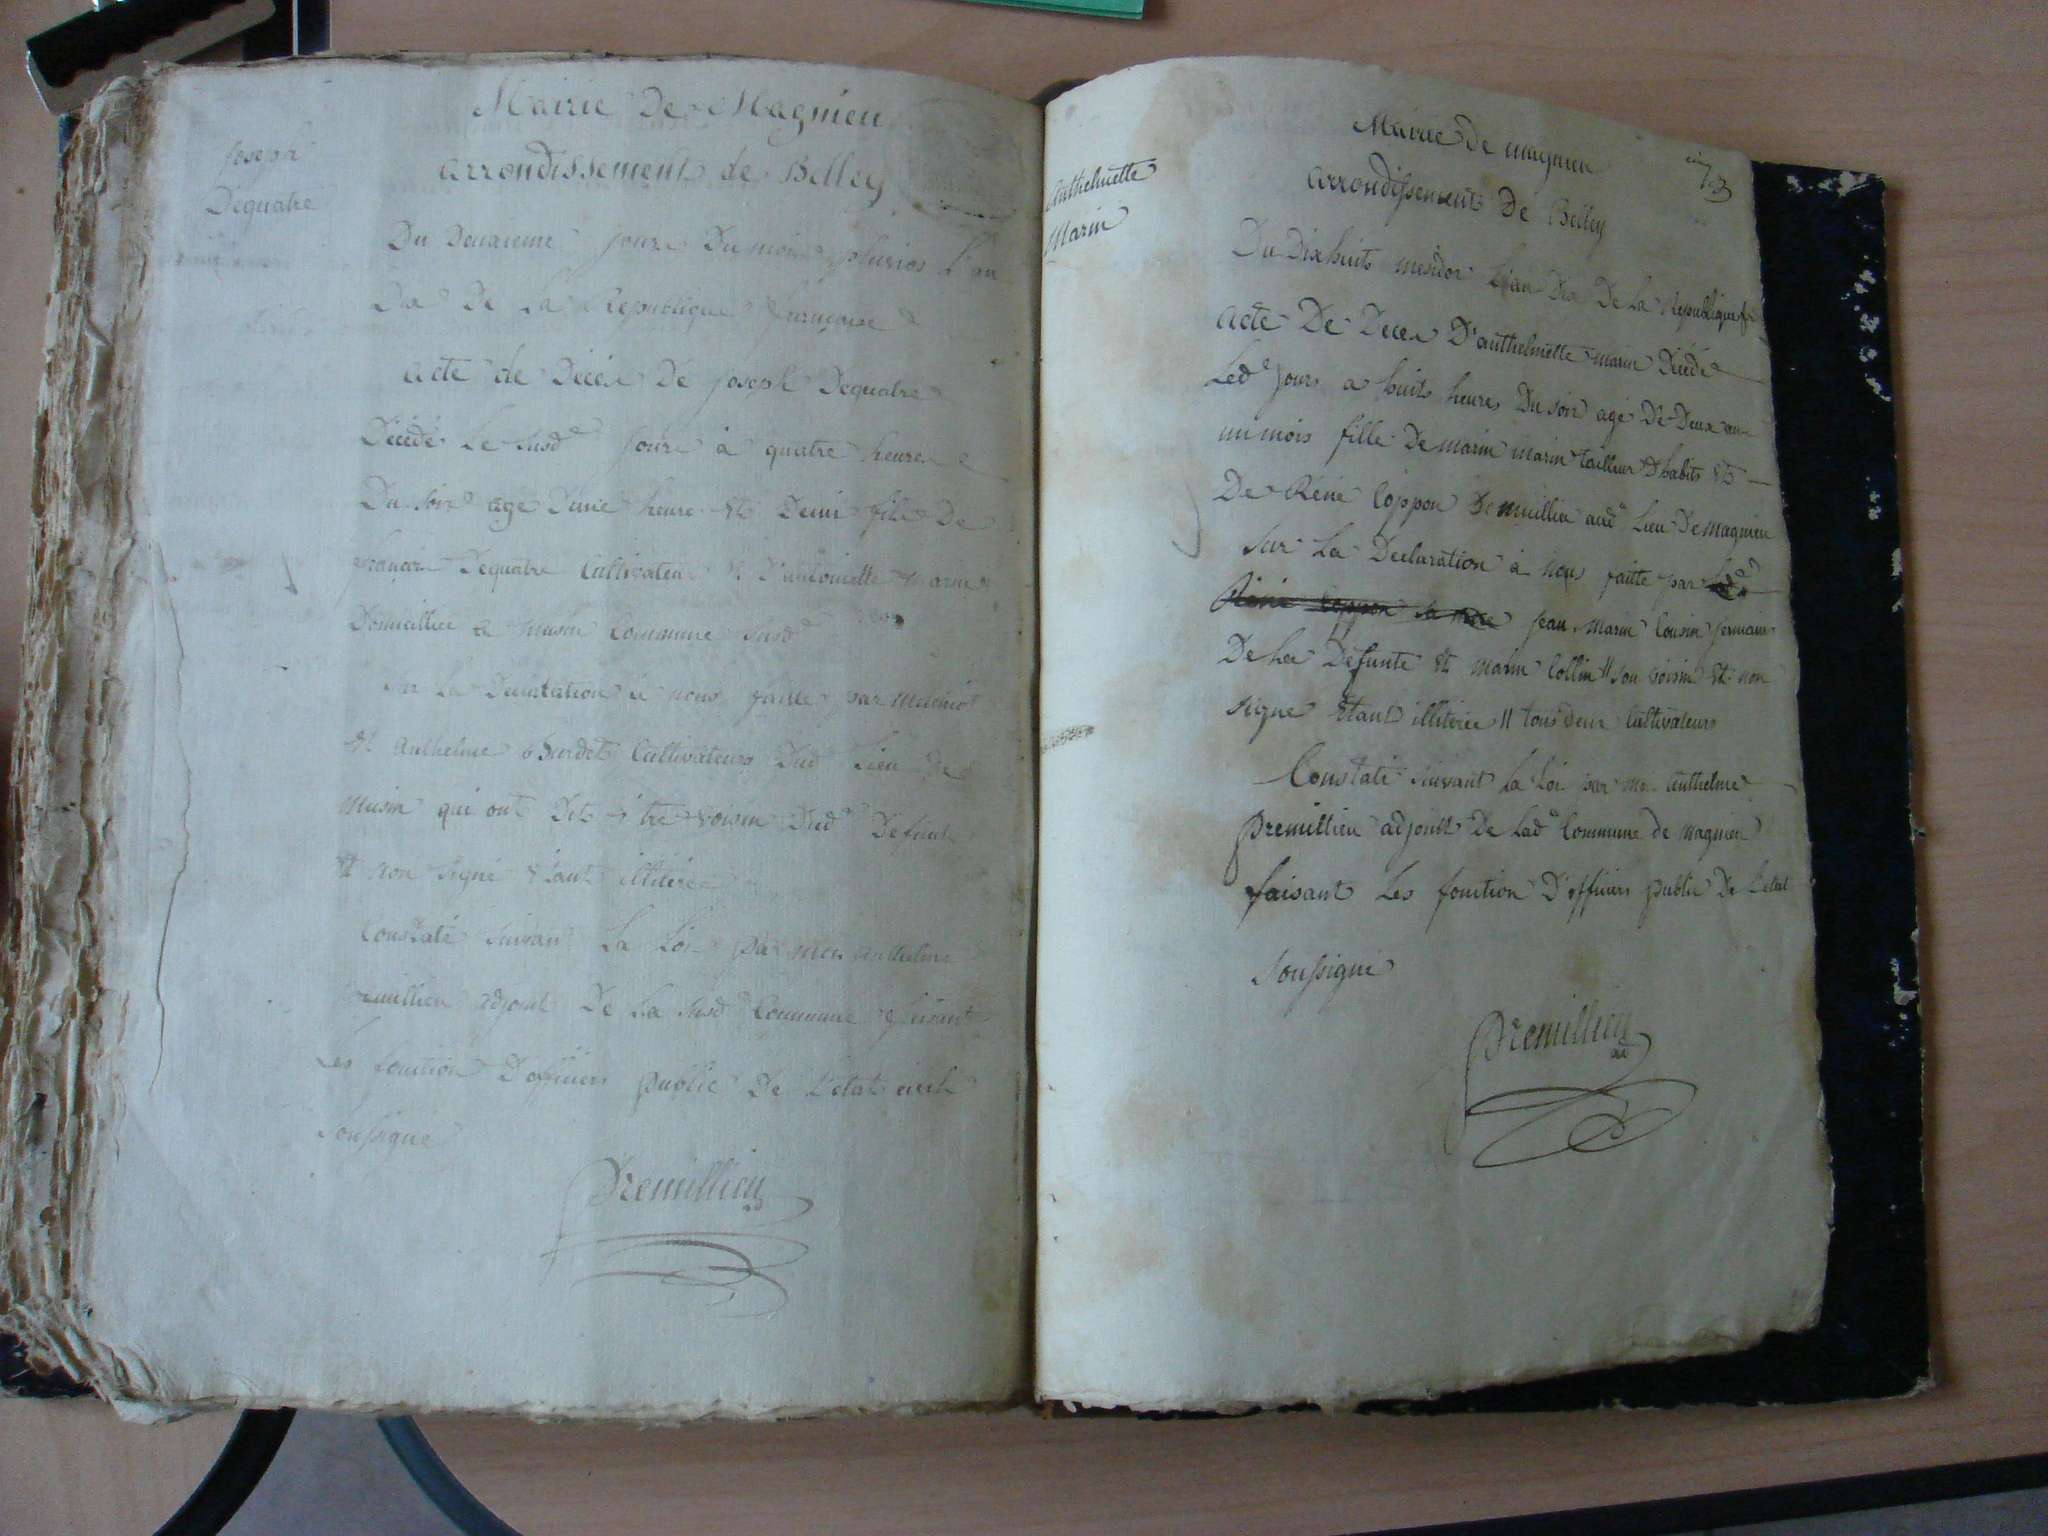 Mairie De Magnieu
arrondissement de Belley
Joseph
Dequatre
Du Deuxieme jour Du mois pluvios L'an
Dix De La Republique française
acte de Décex De joseph Dequatre
Décédé Le susd jour à quatre heure
Du soir agé d'une heure et Demi fils De
françois Dequatre Cultivateur et D'antoinette Marin
Domicillié a musin Commune susd
sur La Declaration à nous faitte par
et anthelme Burdet Cultivateurs Dud Lieu De
Musin qui ont Dit être voisin Dud Defunt
et non signé étant illitéré
Constaté suivant La Loi par moi anthelme
premillieu adjoint De La susd Commune faisant
Les fonction D'officiers public De L'état civil
soussigné
Premillieu
ad
Mairie De magnieu
arrondissement De Belley
73
Anthelmette
Marin
Du Dixhuit mesidor L'an Dix De La Republique fr
acte De Decex D'anthelmette marin Décédé
Led jour a huit heures Du soir agé De Deux an
un mois fille De marin marin tailleur D'habits et
De Réné Coppon Domicillié aud Lieu De magnieu
sur La Declaration à nous faitte par Lad
Réné Coppon sa mère jean marin Cousin germain
De La Defunte et marin Collin // son voisin et non
signé étant illitérée // tous deux Cultivateurs
Constaté suivant La Loi par moi anthelme
Premillieu adjoint De Lad Commune de magnieu
faisant Les fonction D'officiers public De L'état
soussigné
Premillieu
ad